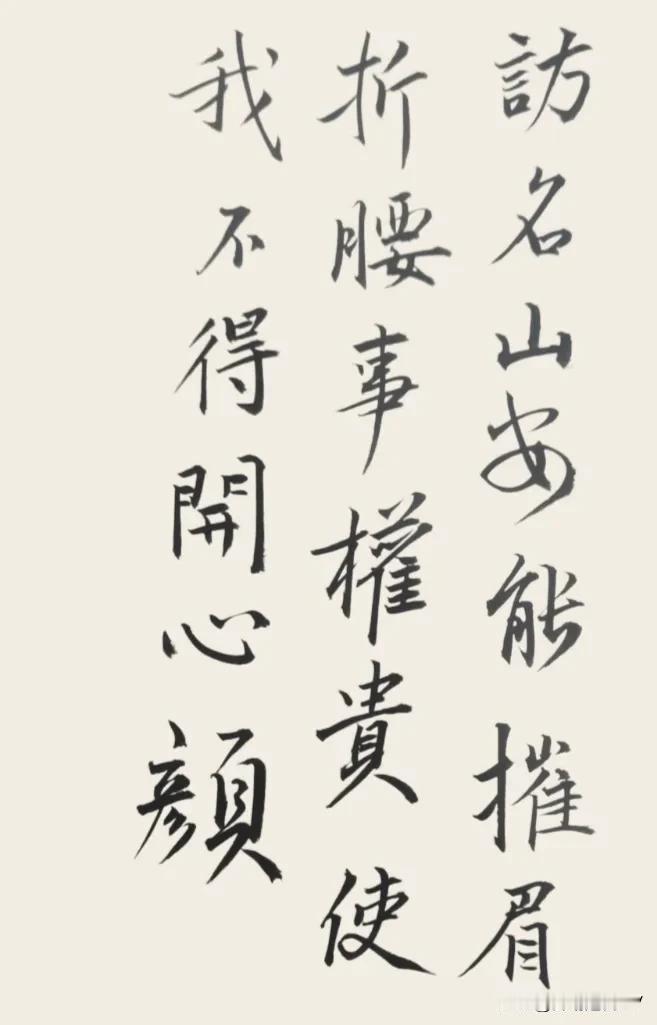 訪名山安能摧眉
折腰事權貴使
我不得開心顔